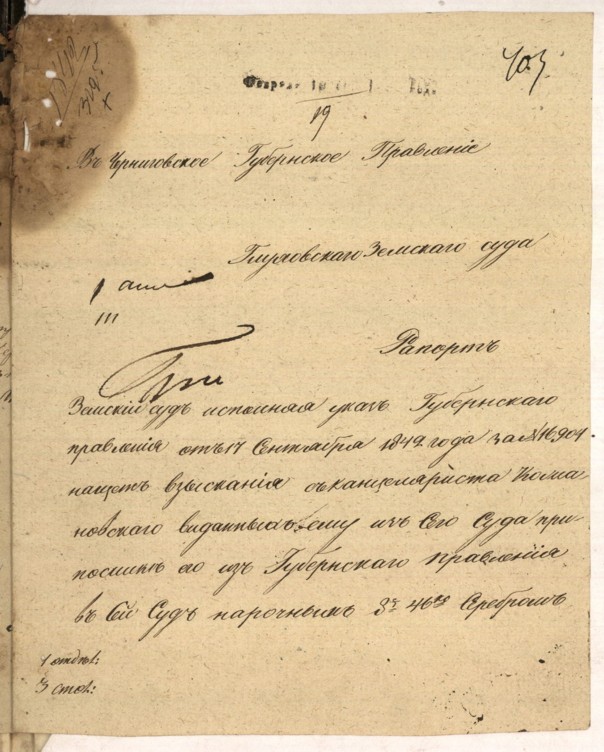 403.
319.
Февраля 10 Года.
19
Въ Черниговское Губернское Правленіе
Глуховскаго Земскаго суда
III
Рапортъ
Земскій судъ исполняя указъ Губернскаго
правленія отъ 17 Сентября 1842 года за № 16,904
насчетъ взысканія съ канцеляриста Кома
новскаго виданныхъ ему изъ Сего Суда при
посылкѣ его изъ Губернского правленія
въ Сей Судъ нарочнымъ 3 р 46 к Серебромъ
1 отдѣл:
3 стол: